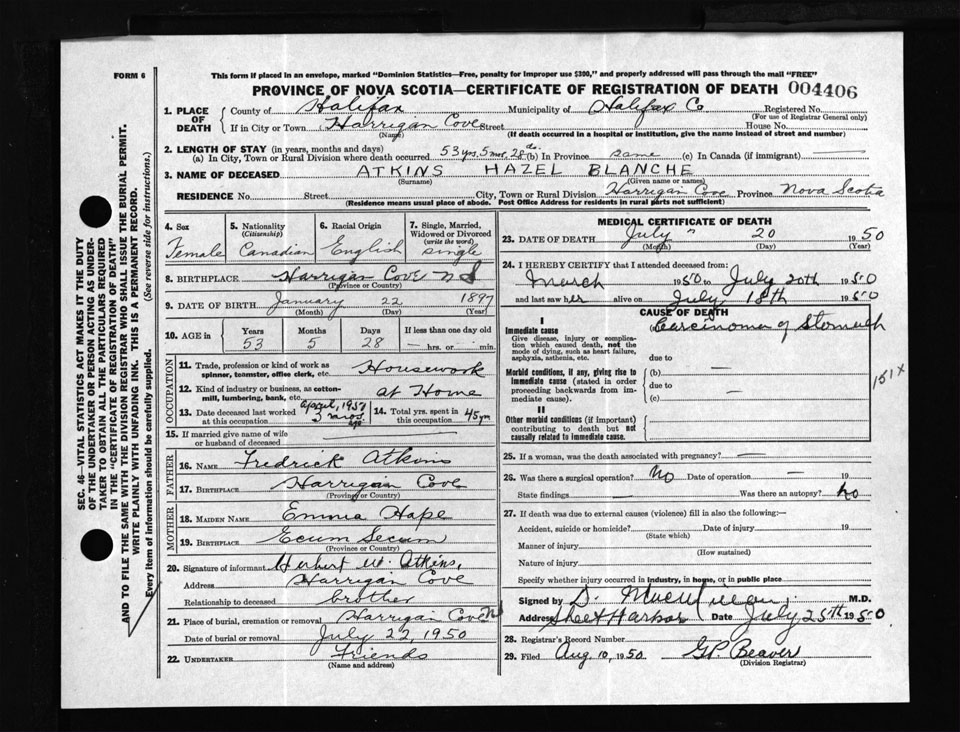 FORM 6
This form if placed in an envelope, marked "Dominion Statistics—Free, penalty for improper use $300," and properly addressed will pass through the mail "FREE"
PROVINCE OF NOVA SCOTIA—CERTIFICATE OF REGISTRATION OF DEATH 004406
1. PLACE OF DEATH
County of Halifax Municipality of Halifax Co Registered No.
(For use of Registrar General only)
If in City or Town Harrigan Cove Street House No.
(Name) (If death occurred in a hospital or institution, give the name instead of street and number)
2. LENGTH OF STAY (in years, months and days)
(a) In City, Town or Rural Division where death occurred 53 yrs, 5 mos, 28 ds. (b) In Province same (c) In Canada (if immigrant) —
3. NAME OF DECEASED ATKINS HAZEL BLANCHE
(Surname) (Given name or names)
RESIDENCE No. Street City, Town or Rural Division Harrigan Cove Province Nova Scotia
(Residence means usual place of abode. Post Office Address for residents in rural parts not sufficient)
4. Sex
Female
5. Nationality
(Citizenship)
Canadian
6. Racial Origin
English
7. Single, Married, Widowed or Divorced
(write the word)
Single
8. BIRTHPLACE Harrigan Cove N S
(Province or Country)
9. DATE OF BIRTH January 22 1897
(Month) (Day) (Year)
10. AGE in Years Months Days If less than one day old
53 5 28 — hrs. or — min.
OCCUPATION
11. Trade, profession or kind of work as spinner, teamster, office clerk, etc. Housework
12. Kind of industry or business, as cotton-mill, lumbering, bank, etc. at Home
13. Date deceased last worked at this occupation April, 1950 3 mos. ago
14. Total yrs. spent in this occupation 45 yrs
15. If married give name of wife or husband of deceased —
FATHER
16. NAME Fredrick Atkins
17. BIRTHPLACE Harrigan Cove
(Province or Country)
MOTHER
18. MAIDEN NAME Emma Hape
19. BIRTHPLACE Ecum Secum
(Province or Country)
20. Signature of informant Herbert W. Atkins,
Address Harrigan Cove
Relationship to deceased brother
21. Place of burial, cremation or removal Harrigan Cove NS
Date of burial or removal July 22, 1950
22. UNDERTAKER Friends
(Name and address)
MEDICAL CERTIFICATE OF DEATH
23. DATE OF DEATH July 20 1950
(Month) (Day) (Year)
24. I HEREBY CERTIFY that I attended deceased from:
March 1950 to July 20th 1950
and last saw her alive on July 18th 1950
CAUSE OF DEATH
I
Immediate cause
Give disease, injury or complication which caused death, not the mode of dying, such as heart failure, asphyxia, asthenia, etc.
(a) Carcinoma of Stomach
due to
Morbid conditions, if any, giving rise to immediate cause (stated in order proceeding backwards from immediate cause).
(b) —
due to
(c) —
151X
II
Other morbid conditions (if important) contributing to death but not causally related to immediate cause.
25. If a woman, was the death associated with pregnancy? —
26. Was there a surgical operation? No Date of operation — 19
State findings — Was there an autopsy? No
27. If death was due to external causes (violence) fill in also the following:—
Accident, suicide or homicide? Date of injury 19
(State which)
Manner of injury
(How sustained)
Nature of injury
Specify whether injury occurred in industry, in home, or in public place
Signed by D. M.D.
Address Sheet Harbor Date July 25th 1950
28. Registrar's Record Number
29. Filed Aug. 10, 1950 G.P. Beaver
(Division Registrar)
SEC. 46—VITAL STATISTICS ACT MAKES IT THE DUTY
OF THE UNDERTAKER OR PERSON ACTING AS UNDER-
TAKER TO OBTAIN ALL THE PARTICULARS REQUIRED
IN THE "CERTIFICATE OF REGISTRATION OF DEATH"
AND TO FILE THE SAME WITH THE DIVISION REGISTRAR WHO SHALL ISSUE THE BURIAL PERMIT.
WRITE PLAINLY WITH UNFADING INK. THIS IS A PERMANENT RECORD.
Every item of information should be carefully supplied. (See reverse side for instructions.)